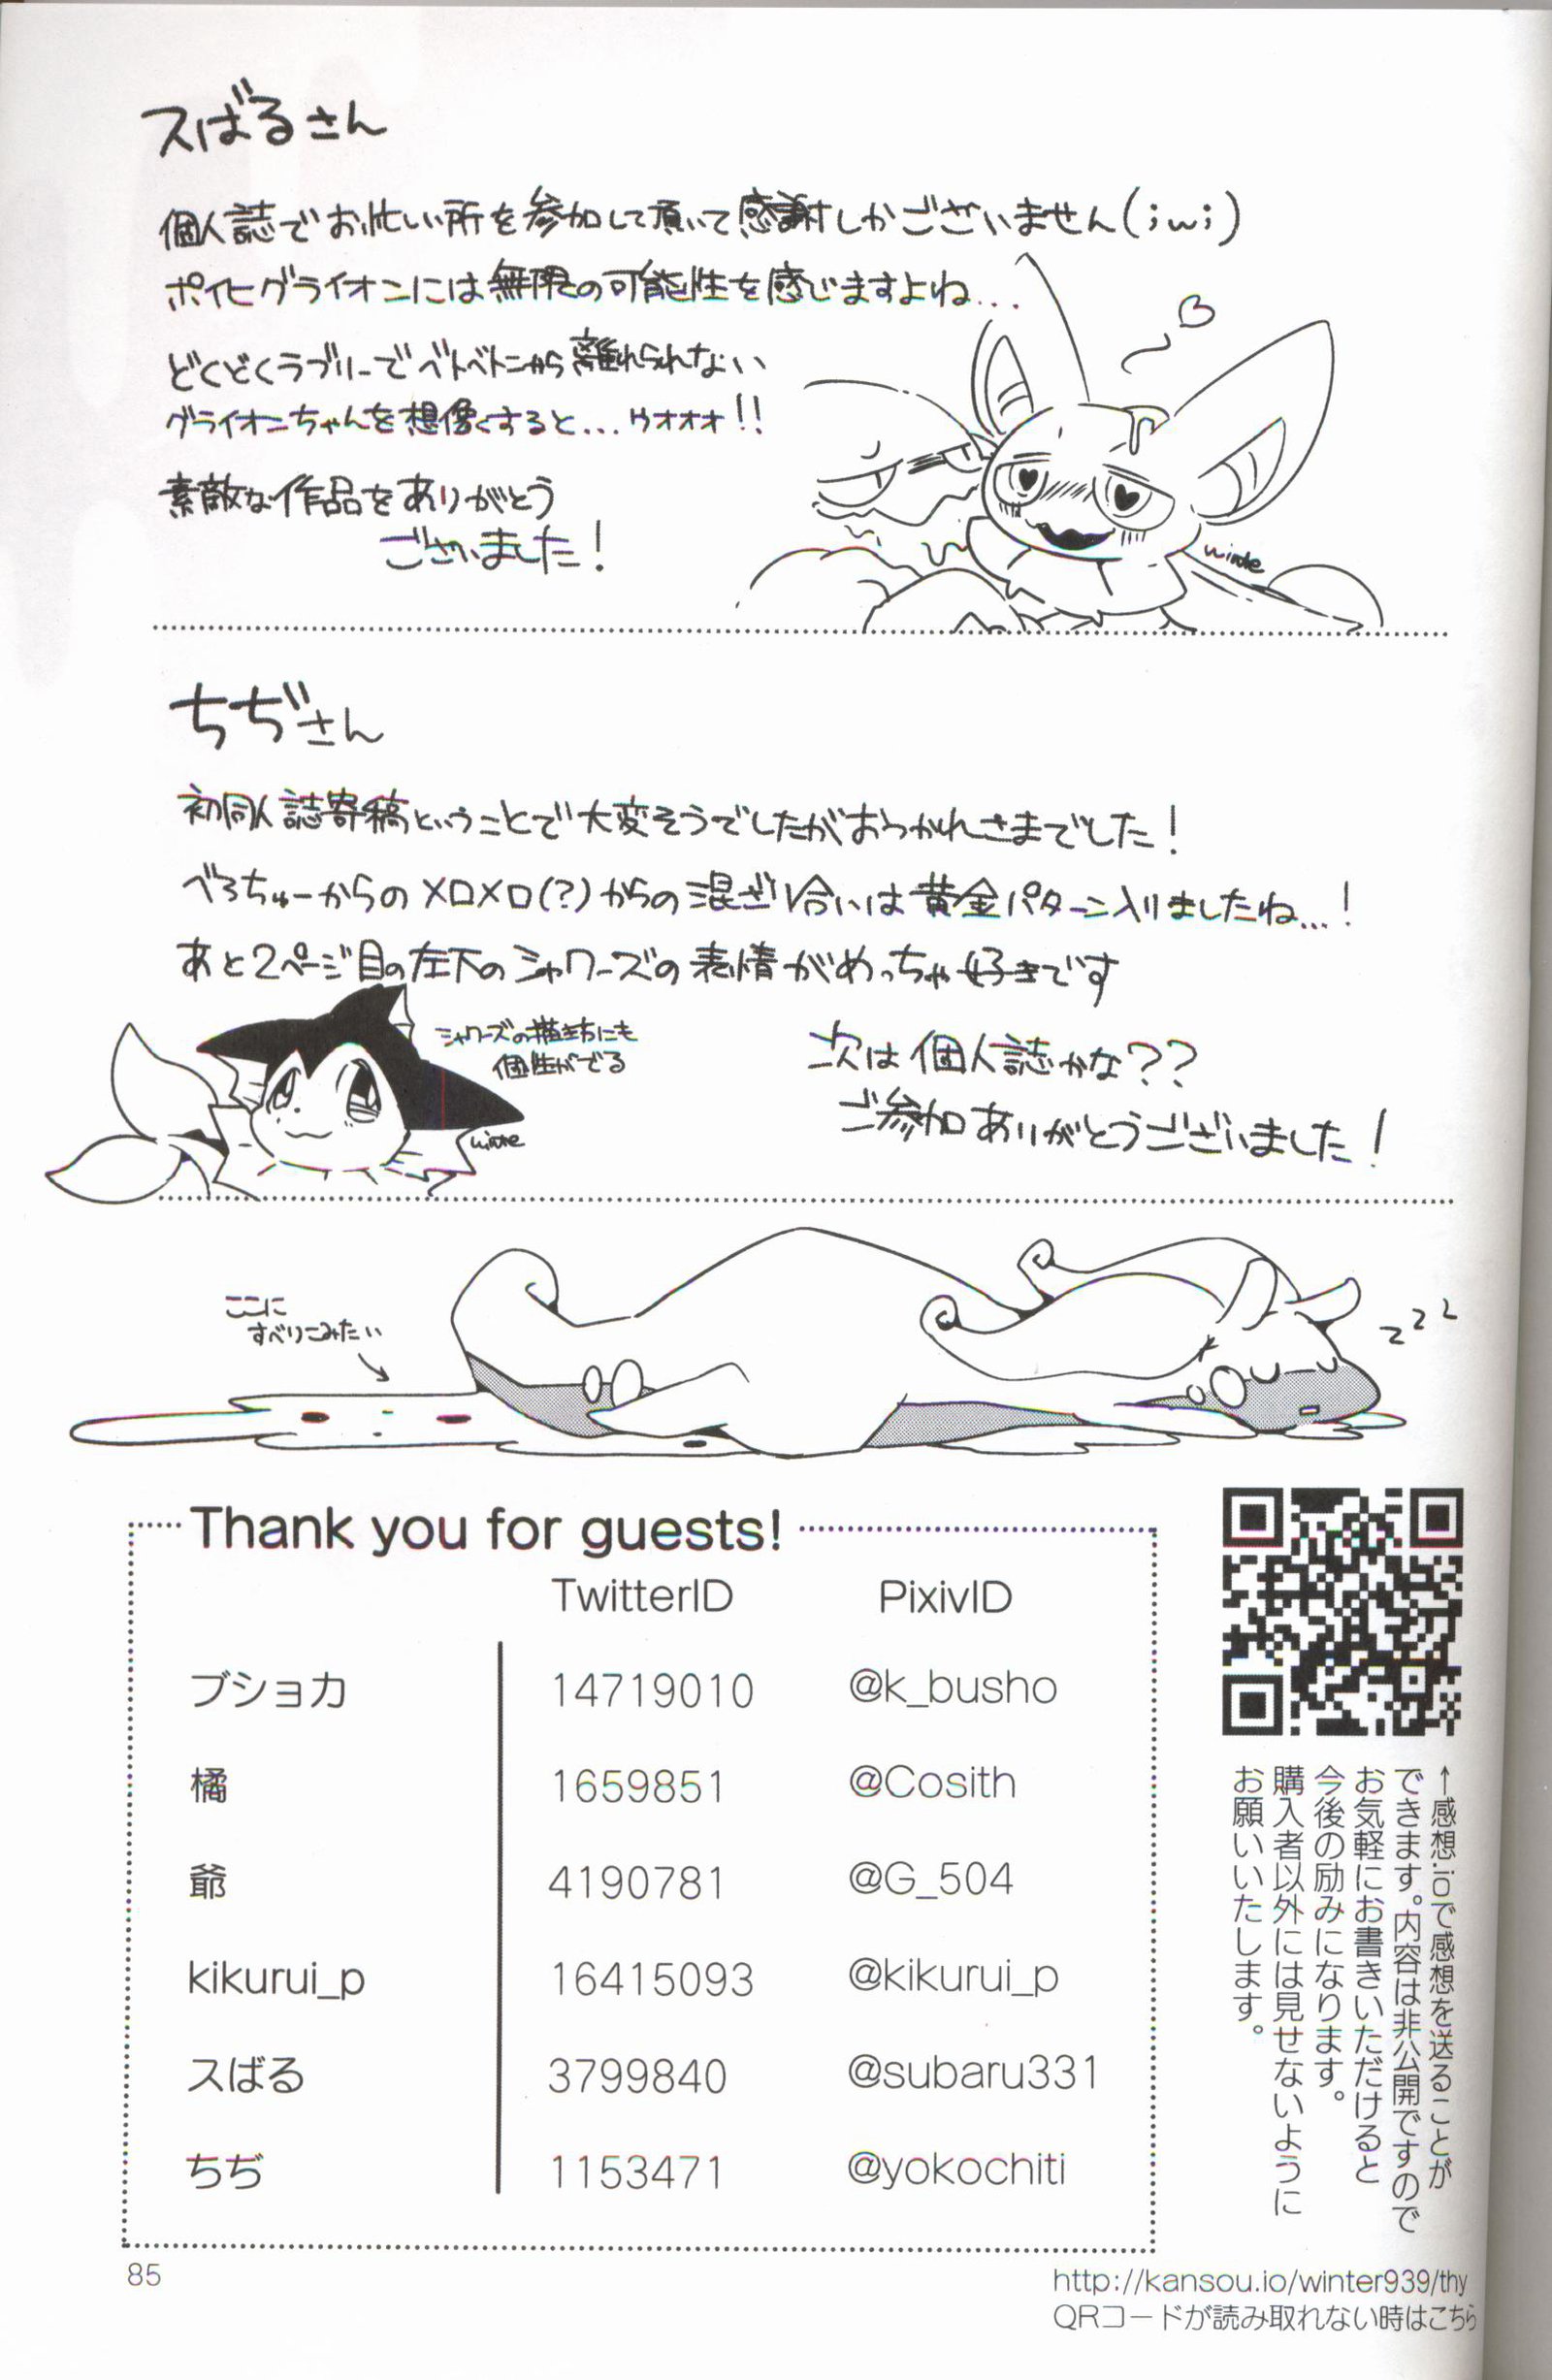 スばるさん
個人誌でお忙しい所を参加して頂いて感謝しかございません(;w;)
ポイヒグライオンには無限の可能性を感じますよね...
どくどくラブリーでベトベトンから離れられない
グライオンちゃんを想像すると...ウオオオ!!
素敵な作品をありがとう
ございました!
ちぢさん
初同人誌寄稿ということで大変そうでしたがおつかれさまでした!
べろちゅーからのメロメロ(?)からの混ざり合いは黄金パターン入りましたね...!
あと2ページ目の左下のシャワーズの表情がめっちゃ好きです
シャワーズの描き方にも
個性がでる
次は個人誌かな??
ご参加ありがとうございました!
ここに
すべりこみたい
zzz
Thank you for guests!
TwitterID PixivID
ブショカ 14719010 @k_busho
橘 1659851 @Cosith
爺 4190781 @G_504
kikurui_p 16415093 @kikurui_p
スばる 3799840 @subaru331
ちぢ 1153471 @yokochiti
←感想.ioで感想を送ることが
できます。内容は非公開ですので
お気軽にお書きいただけると
今後の励みになります。
購入者以外には見せないように
お願いいたします。
85
http://kansou.io/winter939/thy
QRコードが読み取れない時はこちら